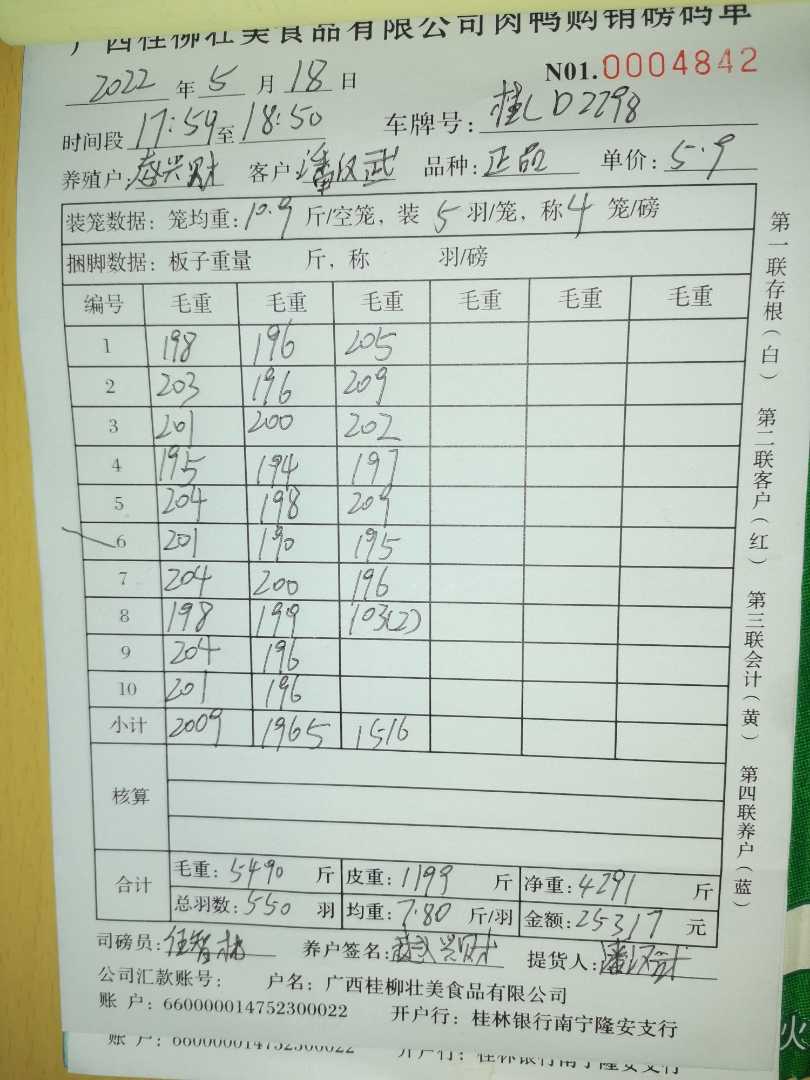 广西桂柳壮美食品有限公司肉鸭购销磅码单
2022 年 5 月 18 日 N01.0004842
时间段 17:59 至 18:50 车牌号: 桂LD2298
养殖户: 兴财 客户: 潘汉武 品种: 正品 单价: 5.9
装笼数据: 笼均重: 10.9 斤/空笼, 装 5 羽/笼, 称 4 笼/磅
捆脚数据: 板子重量 斤, 称 羽/磅
编号 毛重 毛重 毛重 毛重 毛重 毛重
1 198 196 205
2 203 196 209
3 201 200 202
4 195 194 197
5 204 198 209
6 201 190 195
7 204 200 196
8 198 199 103(2)
9 204 196
10 201 196
小计 2009 1965 1516
核算
合计 毛重: 5490 斤 皮重: 1199 斤 净重: 4291 斤
总羽数: 550 羽 均重: 7.80 斤/羽 金额: 25317 元
司磅员: 任智林 养户签名: 兴财 提货人: 潘汉武
公司汇款账号: 户名: 广西桂柳壮美食品有限公司
账 户: 660000014752300022 开户行: 桂林银行南宁隆安支行
账 户: 660000014752300022 开户行: 桂林银行南宁隆安支行
第一联存根(白) 第二联客户(红) 第三联会计(黄) 第四联养户(蓝)
火